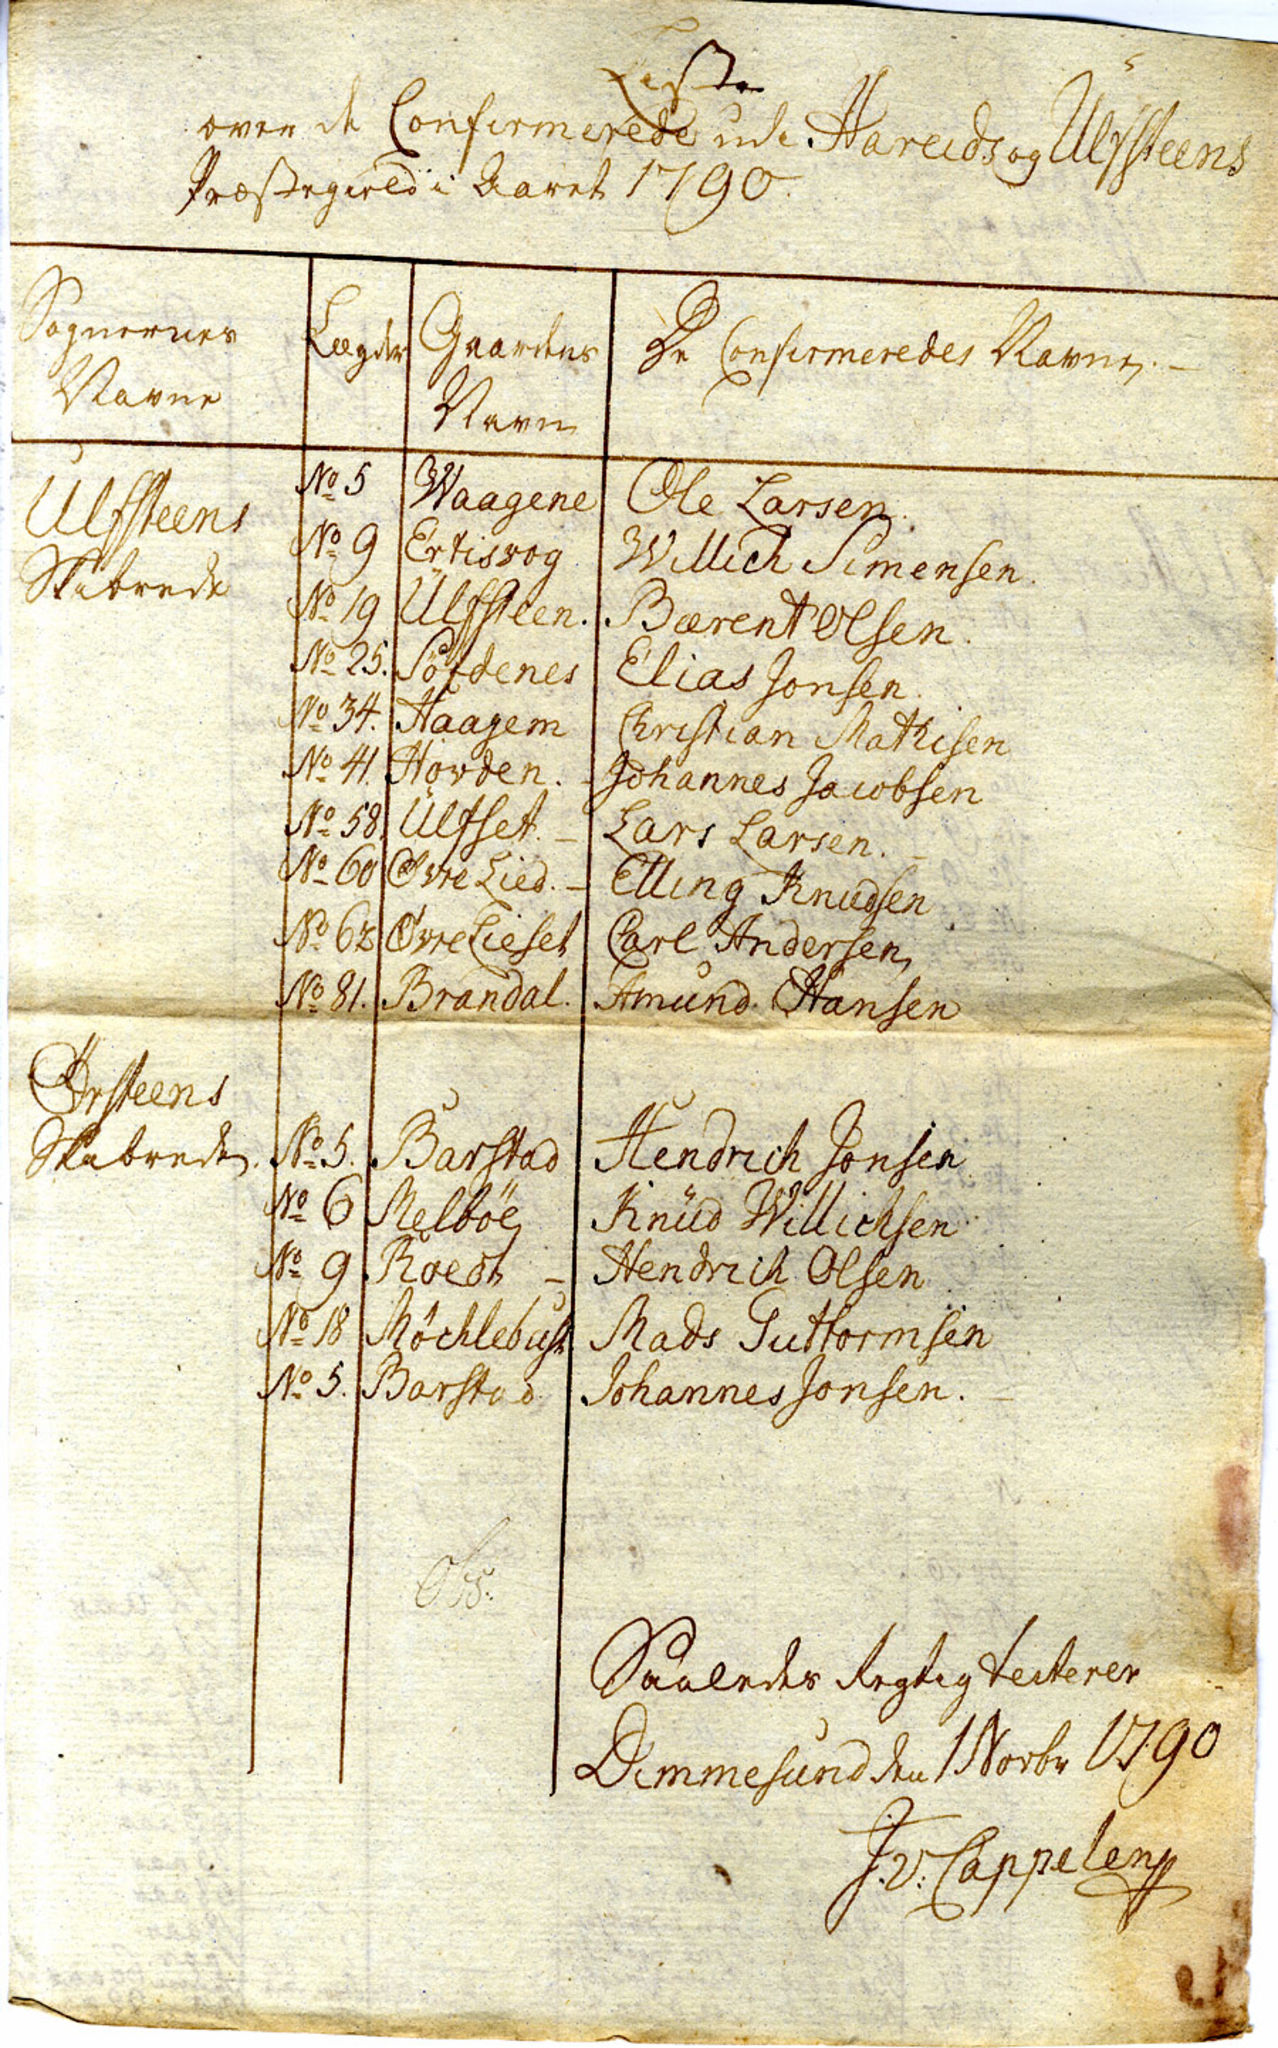 Liste
over de Confirmerede udi Hareids og Ulfsteens
Præstegield i Aaret 1790.
Sognernes Navne | Lægder | Gaardens Navn | De Confirmeredes Navne. -
Ulfsteens Skibrede | No 5 | Waagene | Ole Larsen.
No 9 | Ertisvog | Willich Simensen.
No 19 | Ulfsteen. | Bærent Olsen.
No 25. | Södenes | Elias Jonsen.
No 34. | Haagem | Christian Mathisen
No 41. | Hovden. - | Johannes Jacobsen
No 58. | Ulfset. - | Lars Larsen. -
No 60 | Øvre Lied. - | Elling Knudsen
No 62 | Øvre Lieset | Carl Andersen,
No 81. | Brandal. | Amund Hansen
Ørsteens
Skibrede. | No 5. | Barstad | Hendrich Jonsen
No 6 | Melböe | Knud Willichsen
No 9 | - | Hendrich Olsen
No 18 | Möchlebust | Mads Guttormsen
No 5. | Barstad | Johannes Jonsen. -
Obs.
Saaledes Rigtig testerer
Dimmesund den 1 Novbr 1790
J. v. Cappelen